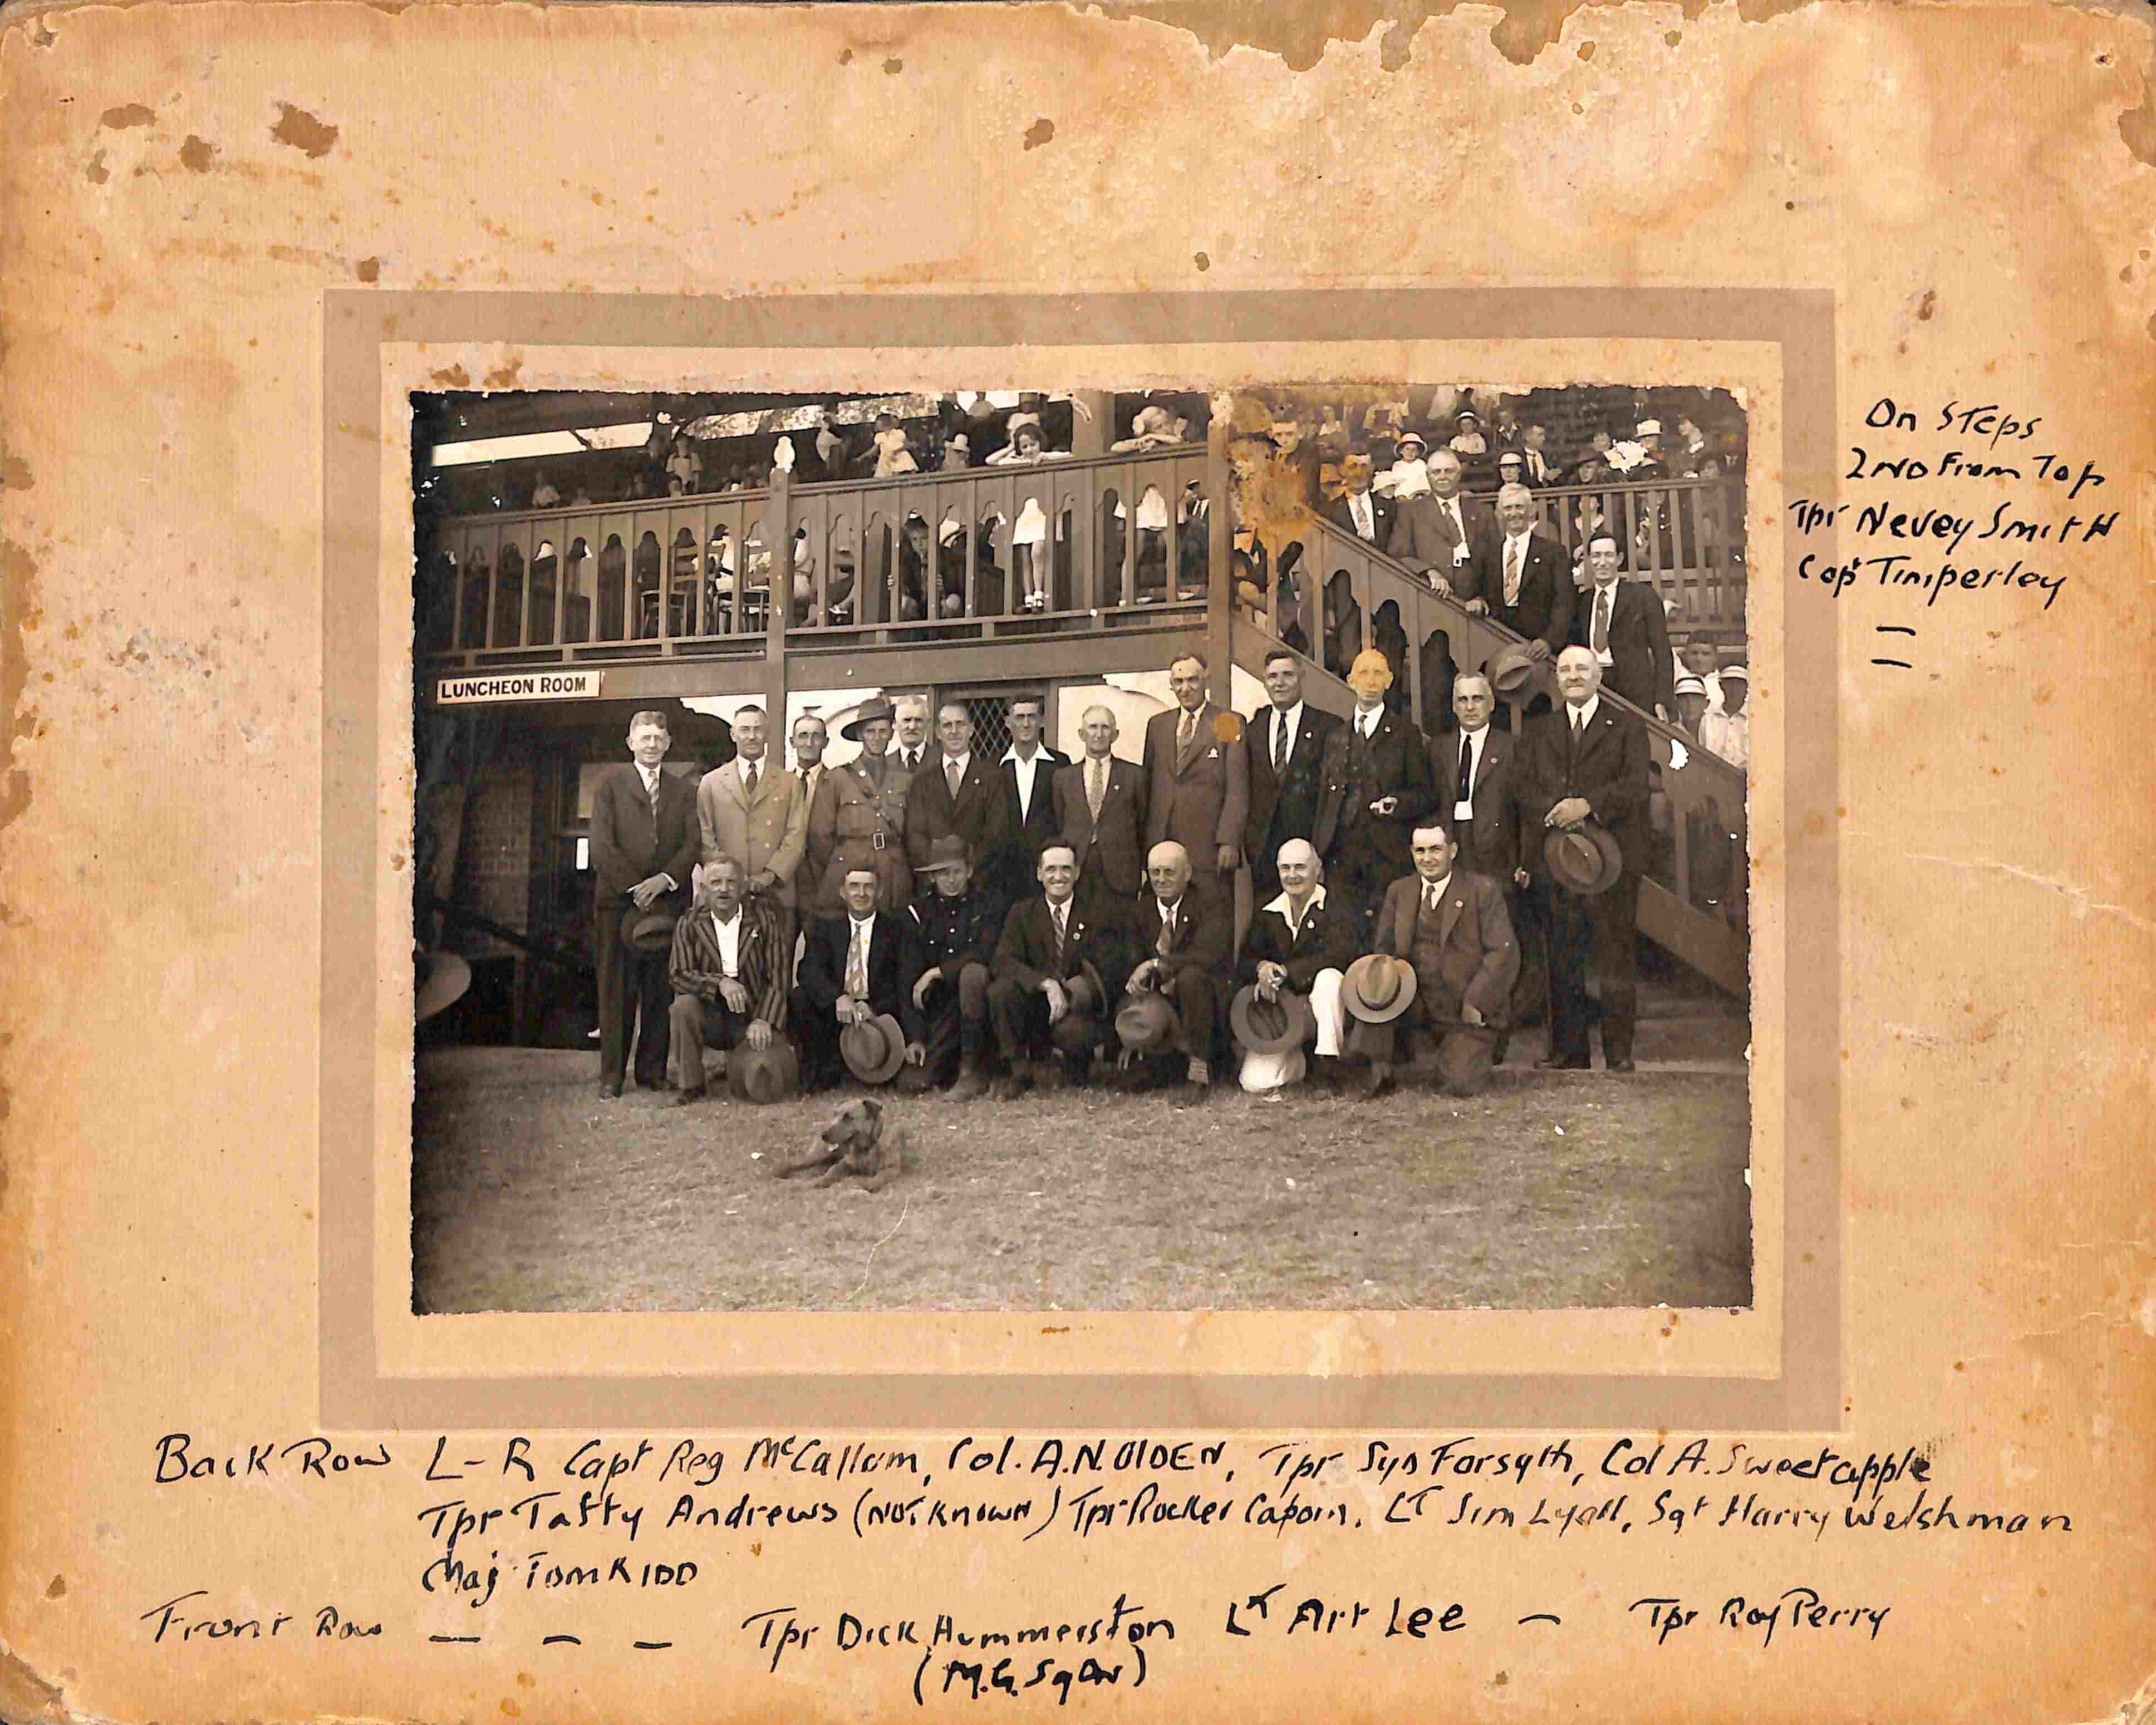 On Steps
2ND From Top
Tpr Nevey Smith
Capt Timperley
—
—
LUNCHEON ROOM
Back Row L-R Capt Reg McCallum, Col. A.N. OLDEN, Tpr Syd Forsyth, Col A. Sweetapple
Tpr Tatty Andrews (NOT KNOWN) Tpr Caporn, LT Jim Lyall, Sgt Harry Welshman
Maj Tom KIDD
Front Row — — — Tpr Dick Hummerston LT Art Lee — Tpr Roy Perry
(M.G. Sqdn)